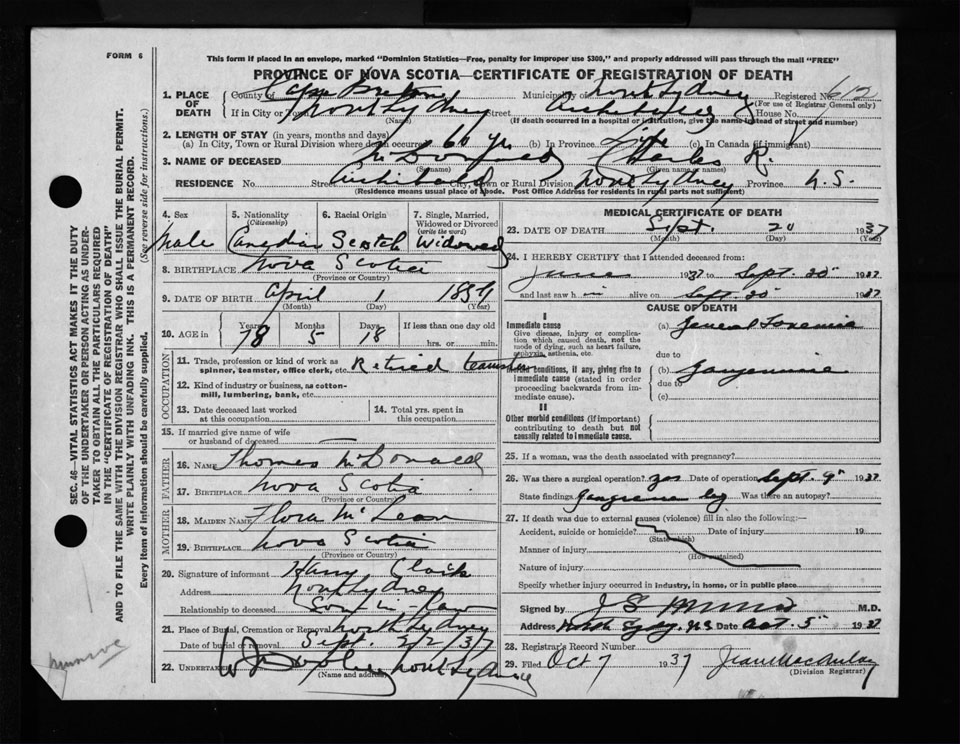 FORM 6
This form if placed in an envelope, marked "Dominion Statistics—Free, penalty for improper use $300," and properly addressed will pass through the mail "FREE"
PROVINCE OF NOVA SCOTIA—CERTIFICATE OF REGISTRATION OF DEATH
1. PLACE OF DEATH County of Cape Breton Municipality of North Sydney Registered No. 612
(For use of Registrar General only)
If in City or Town North Sydney Street House No.
(Name) (If death occurred in a hospital or institution, give the name instead of street and number)
2. LENGTH OF STAY (in years, months and days)
(a) In City, Town or Rural Division where death occurred 60 yrs (b) In Province Life (c) In Canada (if immigrant)
3. NAME OF DECEASED McDonald Charles R.
(Surname) (Given name or names)
RESIDENCE No. Street Archibald City, Town or Rural Division North Sydney Province N.S.
(Residence means usual place of abode. Post Office Address for residents in rural parts not sufficient)
4. Sex Male
5. Nationality (Citizenship) Canadian
6. Racial Origin Scotch
7. Single, Married, Widowed or Divorced (write the word) Widowed
8. BIRTHPLACE Nova Scotia
(Province or Country)
9. DATE OF BIRTH April 1 1859
(Month) (Day) (Year)
10. AGE in Years 78 Months 5 Days 18 If less than one day old
hrs. or min.
OCCUPATION
11. Trade, profession or kind of work as spinner, teamster, office clerk, etc. Retired teamster
12. Kind of industry or business, as cotton-mill, lumbering, bank, etc.
13. Date deceased last worked at this occupation
14. Total yrs. spent in this occupation
15. If married give name of wife or husband of deceased —
FATHER
16. NAME Thomas McDonald
17. BIRTHPLACE Nova Scotia
(Province or Country)
MOTHER
18. MAIDEN NAME Flora McLean
19. BIRTHPLACE Nova Scotia
(Province or Country)
20. Signature of informant Harry Clark
Address North Sydney
Relationship to deceased Son in-law
21. Place of Burial, Cremation or Removal North Sydney
Date of burial or removal Sept. 22 37
22. UNDERTAKER North Sydney
(Name and address)
MEDICAL CERTIFICATE OF DEATH
23. DATE OF DEATH Sept. 20 1937
(Month) (Day) (Year)
24. I HEREBY CERTIFY that I attended deceased from:
June 1937 to Sept. 20 1937
and last saw h im alive on Sept. 20 1937
CAUSE OF DEATH
I
Immediate cause
Give disease, injury or complication which caused death, not the mode of dying, such as heart failure, asphyxia, asthenia, etc.
(a) General Toxemia
due to
Morbid conditions, if any, giving rise to immediate cause (stated in order proceeding backwards from immediate cause).
(b)
due to
(c)
II
Other morbid conditions (if important) contributing to death but not causally related to immediate cause.
25. If a woman, was the death associated with pregnancy?
26. Was there a surgical operation? yes Date of operation Sept. 9 1937
State findings Gangrene leg Was there an autopsy?
27. If death was due to external causes (violence) fill in also the following:—
Accident, suicide or homicide? Date of injury 19
(State which)
Manner of injury
(How sustained)
Nature of injury
Specify whether injury occurred in industry, in home, or in public place
Signed by M.D.
Address North Sydney, N.S. Date Oct. 5 1937
28. Registrar's Record Number
29. Filed Oct 7 1937 Jean MacAulay
(Division Registrar)
SEC. 46—VITAL STATISTICS ACT MAKES IT THE DUTY
OF THE UNDERTAKER OR PERSON ACTING AS UNDER-
TAKER TO OBTAIN ALL THE PARTICULARS REQUIRED
IN THE "CERTIFICATE OF REGISTRATION OF DEATH"
AND TO FILE THE SAME WITH THE DIVISION REGISTRAR WHO SHALL ISSUE THE BURIAL PERMIT.
WRITE PLAINLY WITH UNFADING INK. THIS IS A PERMANENT RECORD.
Every item of information should be carefully supplied. (See reverse side for instructions.)
Munroe